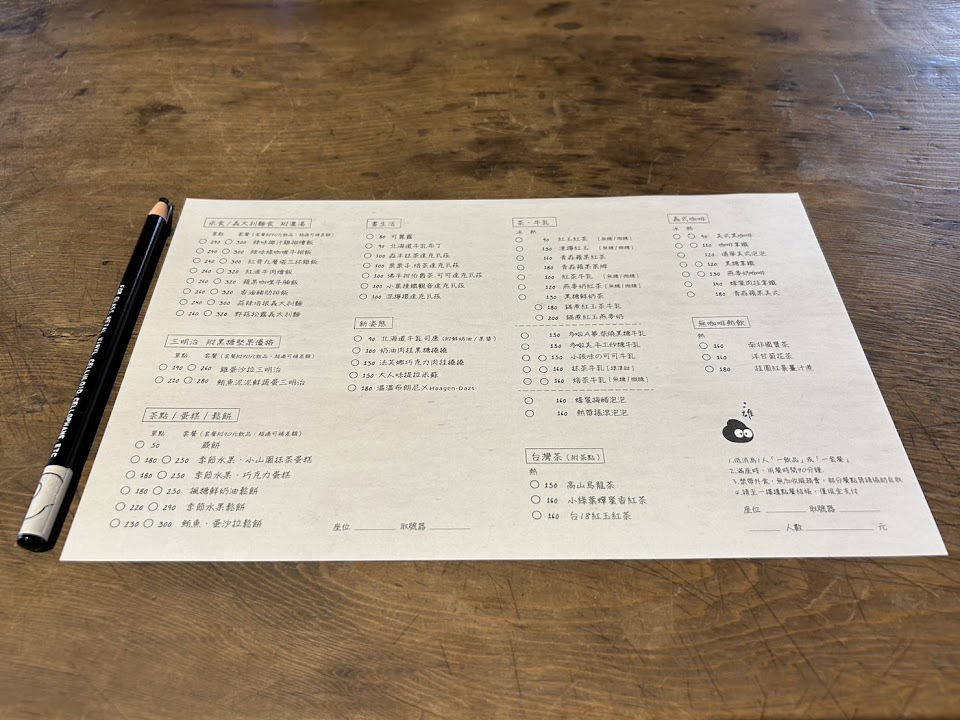 米食/義大利麵食 附濃湯
單點 套餐(套餐附90元飲品，超過可補差額)
240 300 辣味椰汁雞腿燉飯
240 300 辣味綠咖哩牛腩飯
240 300 紅骨九層塔三杯雞飯
260 320 紅酒牛肉燴飯
260 320 蘋果咖哩牛腩飯
260 320 香滷豬肋排飯
240 300 蒜辣培根義大利麵
260 320 野菇松露義大利麵
三明治 附黑糖堅果優格
單點 套餐(套餐附90元飲品，超過可補差額)
190 260 雞蛋沙拉三明治
220 280 鮪魚泥泥鮮蔬蛋三明治
茶點/蛋糕/鬆餅
單點 套餐(套餐附90元飲品，超過可補差額)
50 蕨餅
180 250 季節水果・小山園抹茶蛋糕
180 250 季節水果・巧克力蛋糕
180 250 楓糖鮮奶油鬆餅
220 290 季節水果鬆餅
230 300 鮪魚・蛋沙拉鬆餅
書生活
80 可麗露
90 北海道牛乳布丁
100 森半抹茶達克瓦茲
100 栗栗子.焙茶達克瓦茲
100 佛手柑伯爵茶.可可達克瓦茲
100 小葉種鐵觀音達克瓦茲
100 泥煤達克瓦茲
新姿態
90 北海道牛乳司康(附鮮奶油/果醬)
100 奶油肉桂黑糖捲捲
150 法芙娜巧克力肉桂捲捲
150 大人味提拉米蘇
180 溫溫布朗尼×Häagen-Dazs
座位 取號器
茶・牛乳
冰 熱
90 紅玉紅茶 [無糖/微糖]
130 凍檸紅玉 [無糖/微糖]
160 青森蘋果紅茶
180 青森蘋果果綠
100 紅茶牛乳 [無糖/微糖]
120 燕麥奶紅茶 [無糖/微糖]
130 黑糖鮮奶茶
180 鍋煮紅玉茶牛乳
200 鍋煮紅玉燕麥奶
150 多啦A夢最燒黑糖牛乳
150 多啦美.手工炒糖牛乳
150 小孩味の可可牛乳
160 抹茶牛乳
160 焙茶牛乳 [無糖/微糖]
160 蜂蜜梅醋泡泡
160 熱帶搖滾泡泡
台灣茶(附茶點)
熱
150 高山烏龍茶
160 小綠葉蟬蜜香紅茶
160 台18紅玉紅茶
義式咖啡
冰 熱
90 美式黑咖啡
110 咖啡拿鐵
120 濃華美式泡泡
120 黑糖拿鐵
130 燕麥奶咖啡
140 蜂蜜肉桂拿鐵
180 青森蘋果美式
無咖啡熱飲
熱
160 南非國寶茶
160 洋甘菊花茶
180 桂圓紅棗薑汁煮
二雄
1.低消為1人「一飲品」或「一套餐」
2.滿座時，用餐時間90分鐘.
3.禁帶外食，無加收服務費，部分餐點器請協助自取
4.請至一樓櫃點餐結帳，僅現金支付
座位 取號器
人數 元
FOR GLASS, METAL, VINYL, CELLULOID, CELLOPHANE, ETC.